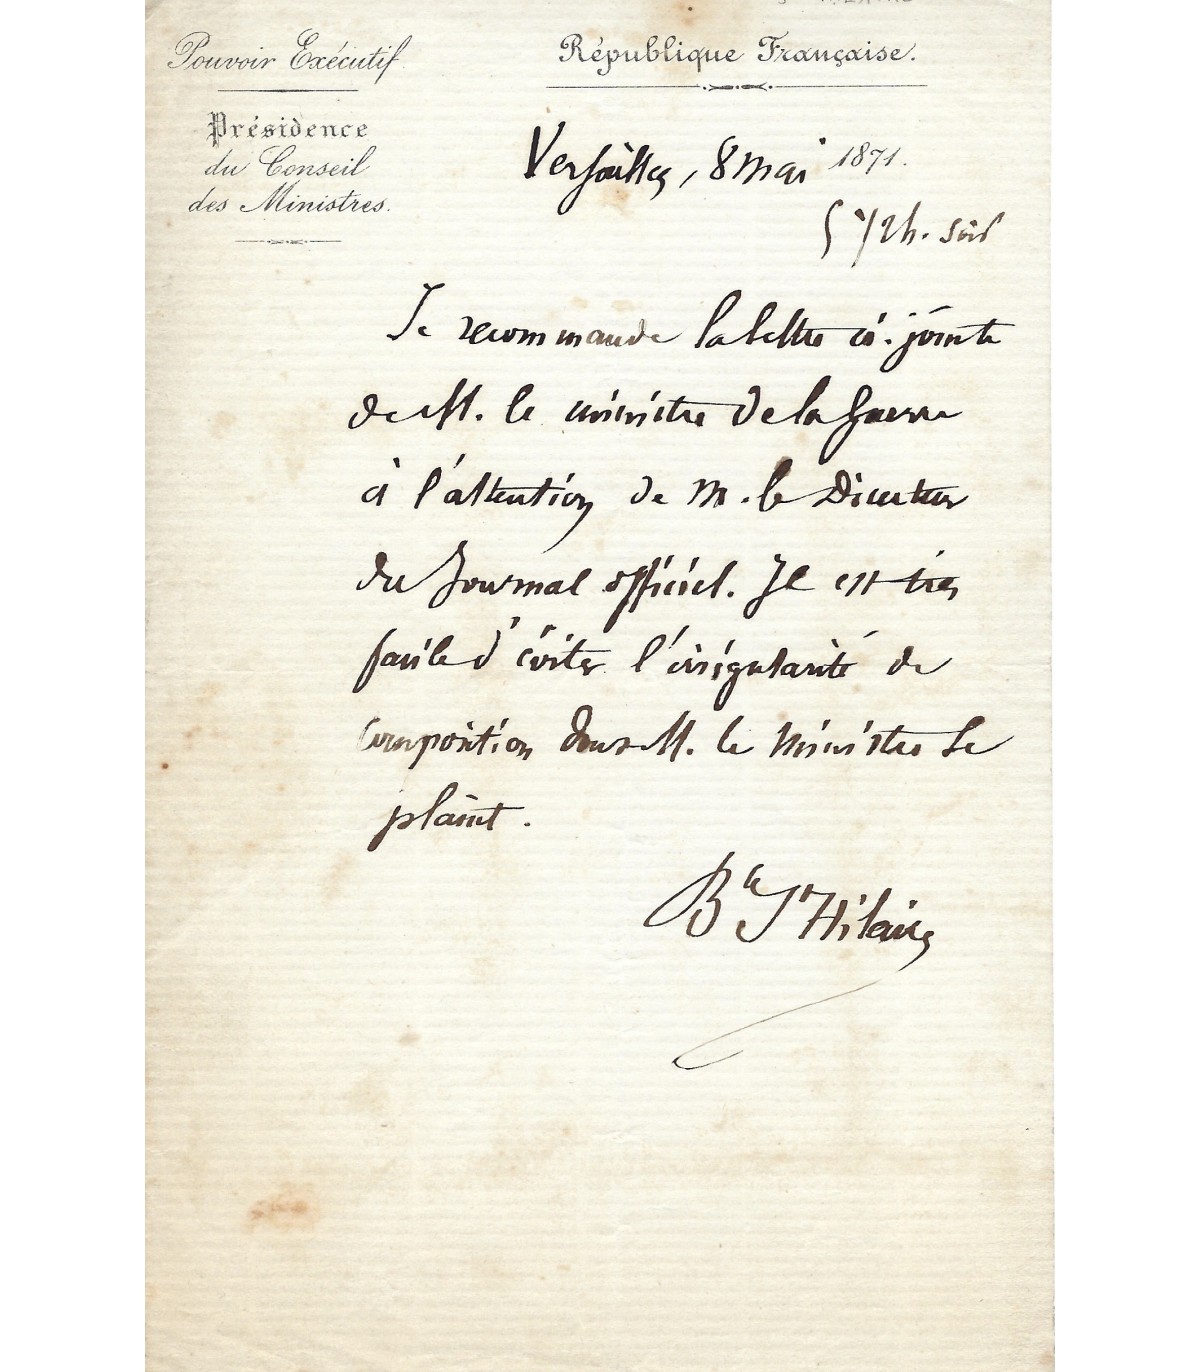 Pouvoir Exécutif
République Française.
Présidence
du Conseil
des Ministres.
Versailles, 8 mai 1871.
5 1/2 h. soir
Je recommande la lettre ci-jointe
de M. le ministre de la Guerre
à l'attention de M. le Directeur
du Journal officiel. Il est très
facile d'éviter l'irrégularité de
composition dont M. le Ministre se
plaint.
By St Hilaire